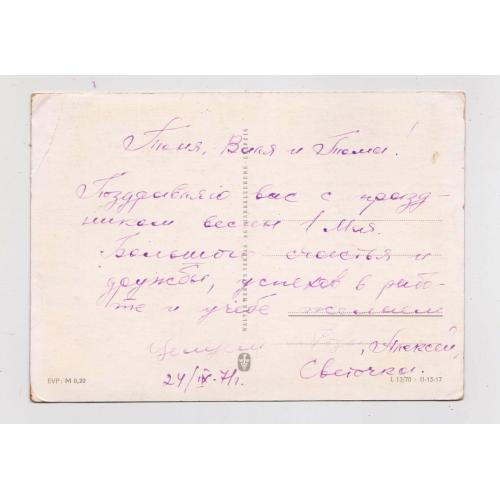 Тоня, Валя и Тома!
Поздравляю вас с празд-
ником весны 1 Мая.
Большого счастья и
дружбы, успехов в рабо-
те и учёбе желаем
Целуем Алексей,
Светочка.
24/IX-71г.
EVP: M 0,20
L 12/70 - II-15-17